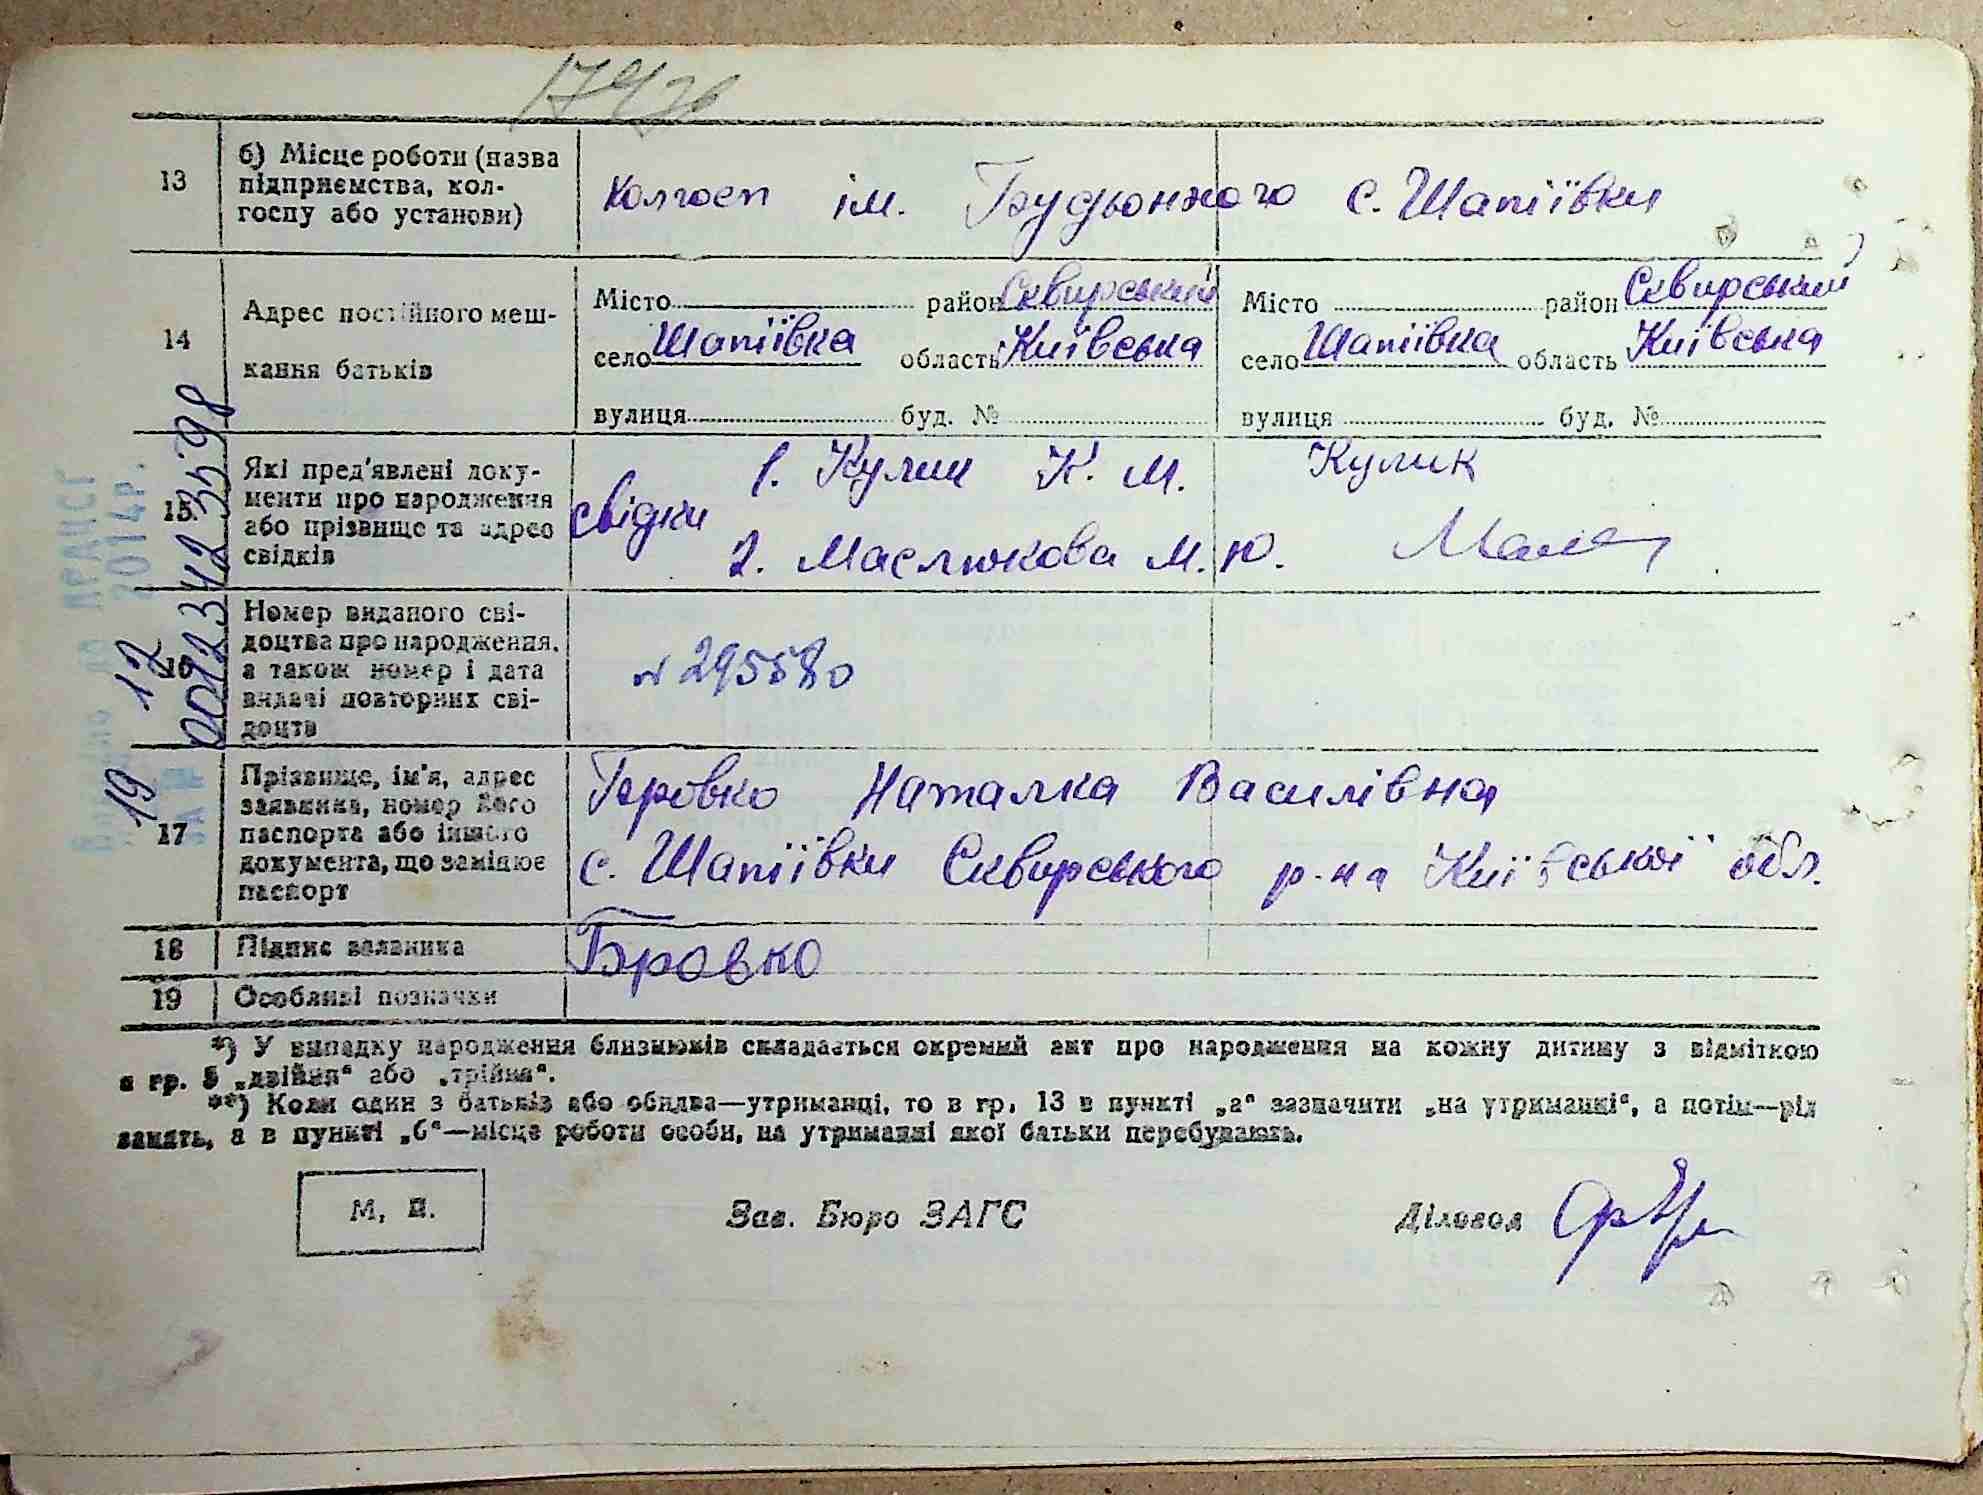 13 б) Місце роботи (назва
підприємства, кол-
госпу або установи)
Колгосп ім. Будьонного с. Шапіївки
14 Адрес постійного меш-
кання батьків
Місто район Сквирський
село Шапіївка область Київська
вулиця буд. №
Місто район Сквирський
село Шапіївка область Київська
вулиця буд. №
15 Які пред'явлені доку-
менти про народження
або прізвище та адрес
свідків
свідки
1. Кулик К. М. Кулик
2. Маслюкова М. Ю.
16 Номер виданого сві-
доцтва про народження,
а також номер і дата
видачі повторних сві-
доцтв
№ 295580
17 Прізвище, ім'я, адрес
заявника, номер його
паспорта або іншого
документа, що заміняє
паспорт
Бровко Наталка Василівна
с. Шапіївки Сквирського р-на Київської обл.
18 Підпис заявника
Бровко
19 Особливі позначки
*) У випадку народження близнюків складається окремий акт про народження на кожну дитину з відміткою
в гр. 5 „двійня“ або „трійня“.
**) Коли один з батьків або обидва—утриманці, то в гр. 13 в пункті „а“ зазначити „на утриманні“, а потім—рід
занять, а в пункті „б“—місце роботи особи, на утриманні якої батьки перебувають.
М. П.
Зав. Бюро ЗАГС
Діловод
19 12
2014р.
00123423598